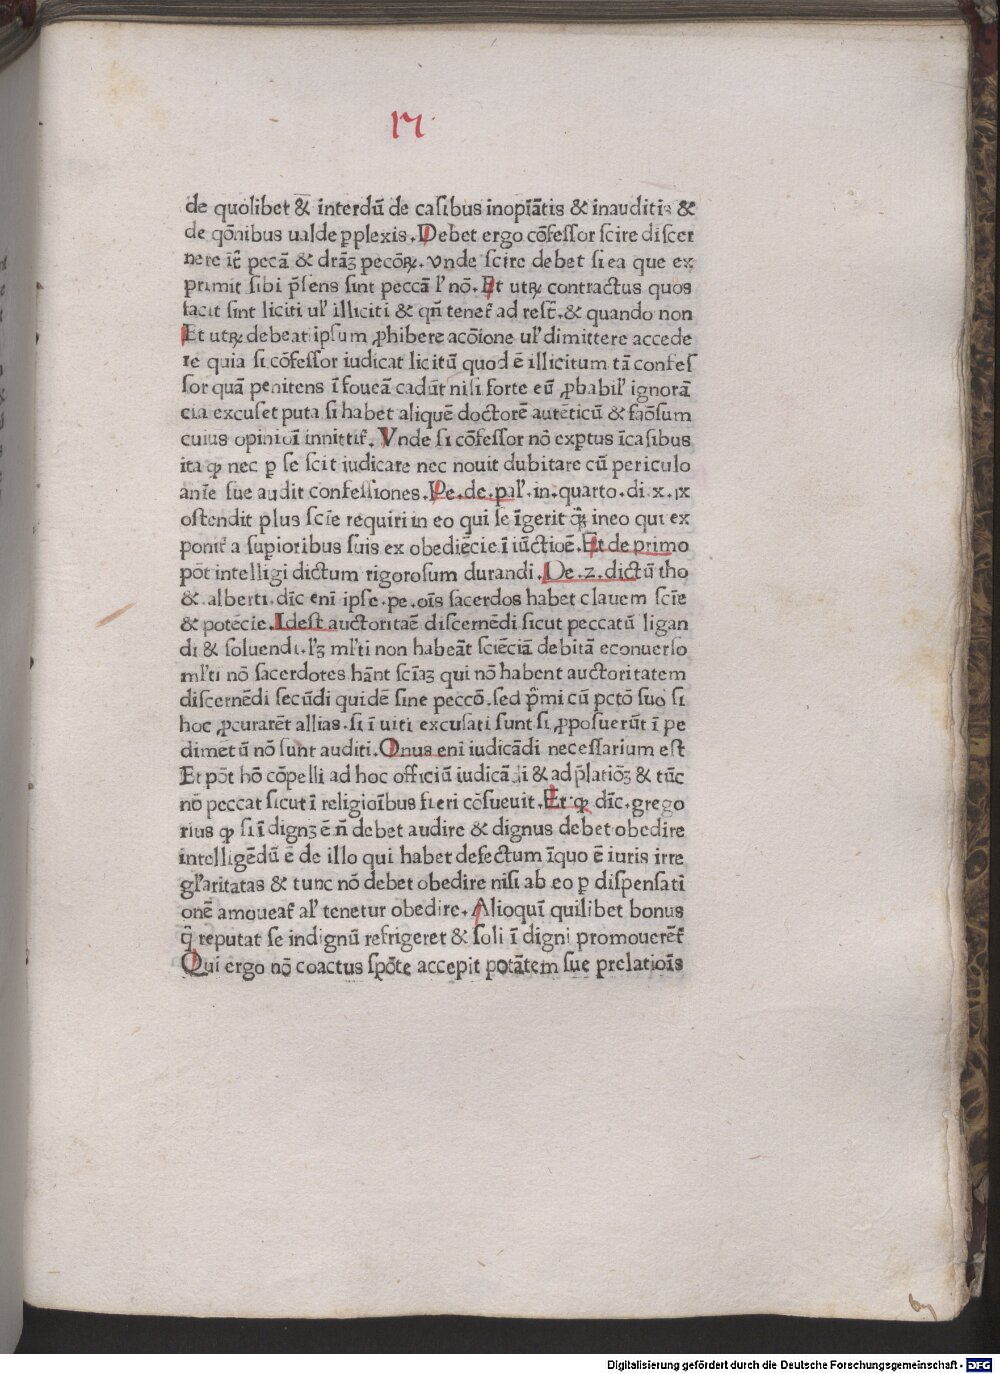 17
de quolibet & interdū de casibus inopīatis & inauditis &
de qōnibus ualde ꝑplexis. Debet ergo cōfessor scire discer
nere īt̄ peccā & drāʒ pecōꝝ. vnde scire debet si ea que ex
primit sibi p̄sens sint peccā l' nō. Et utꝝ contractus quos
facit sint liciti ul' illiciti & qn̄ tenet̄ ad rest̄. & quando non
Et utꝝ debeat ipsum ꝓhibere acōione ul' dimittere accede
re quia si cōfessor iudicat licitū quod ē illicitum tā confes
sor quā penitens ī foueā cadūt nisi forte eū ꝓbabil' ignorā
cia excuset puta si habet aliquē doctorē autēticū & faōsum
cuius opinioī innittit̄. Vnde si cōfessor nō exꝑtus īcasibus
ita ꝙ nec ꝑ se scit iudicare nec nouit dubitare cū periculo
anīe sue audit confessiones. Pe. de. pal'. in. quarto. di. x. ix
ostendit plus scīe requiri in eo qui se īgerit ineo qui ex
ponit̄ a suꝑioribus suis ex obediēcie ī iūctioē. Et de primo
pōt intelligi dictum rigorosum durandi. De. 2. dictū tho
& . alberti. dīc enī ipse. pe. oīs sacerdos habet clauem scīe
& potēcie. Idest auctoritaē discernēdi sicut peccatū ligan
di & soluendi. lʒ ml'ti non habeāt sciēciā debitā econuerso
ml'ti nō sacerdotes hānt scīaʒ qui nō habent auctoritatem
discernēdi secūdi quidē sine peccō. sed p̄mi cū pctō suo si
hoc ꝓcurarēt allias. si ī uiti excusati sunt si ꝓposuerūt ī pe
dimētū nō sunt auditi. Onus enī iudicādi necessarium est
Et pōt hō cōpelli ad hoc officiū iudicādi & ad p̄latiōʒ & tūc
nō peccat sicut ī religioībus fieri cōsueuit. Et ꝙ dīc. grego
rius ꝙ si ī dignʒ ē n̄ debet audire & dignus debet obedire
intelligēdū ē de illo qui habet defectum īquo ē iuris irre
gl'aritatas & tunc nō debet obedire nisi ab eo ꝑ dispensati
onē amoueat̄ al' tenetur obedire. Alioquī quilibet bonus
q̄ reputat se indignū refrigeret & soli ī digni promouerēt̄
Qui ergo nō coactus spōte accepit potātem sue prelatioīs
Digitalisierung gefördert durch die Deutsche Forschungsgemeinschaft - DFG